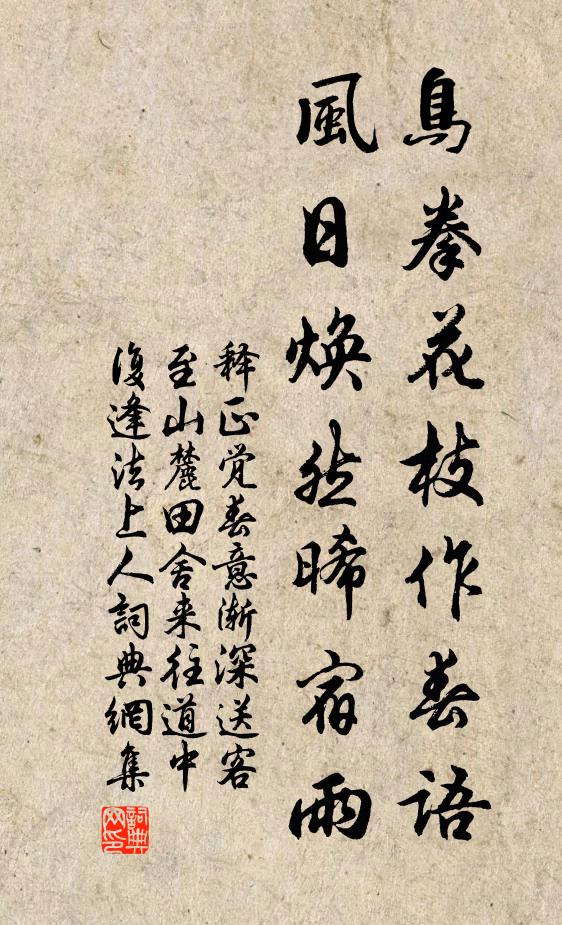 鳥拳花枝作春語
風日煥然晞宿雨
释正觉春意漸深送客
至山麓田舍来往道中
復逢法上人詞典網集
詞典网印